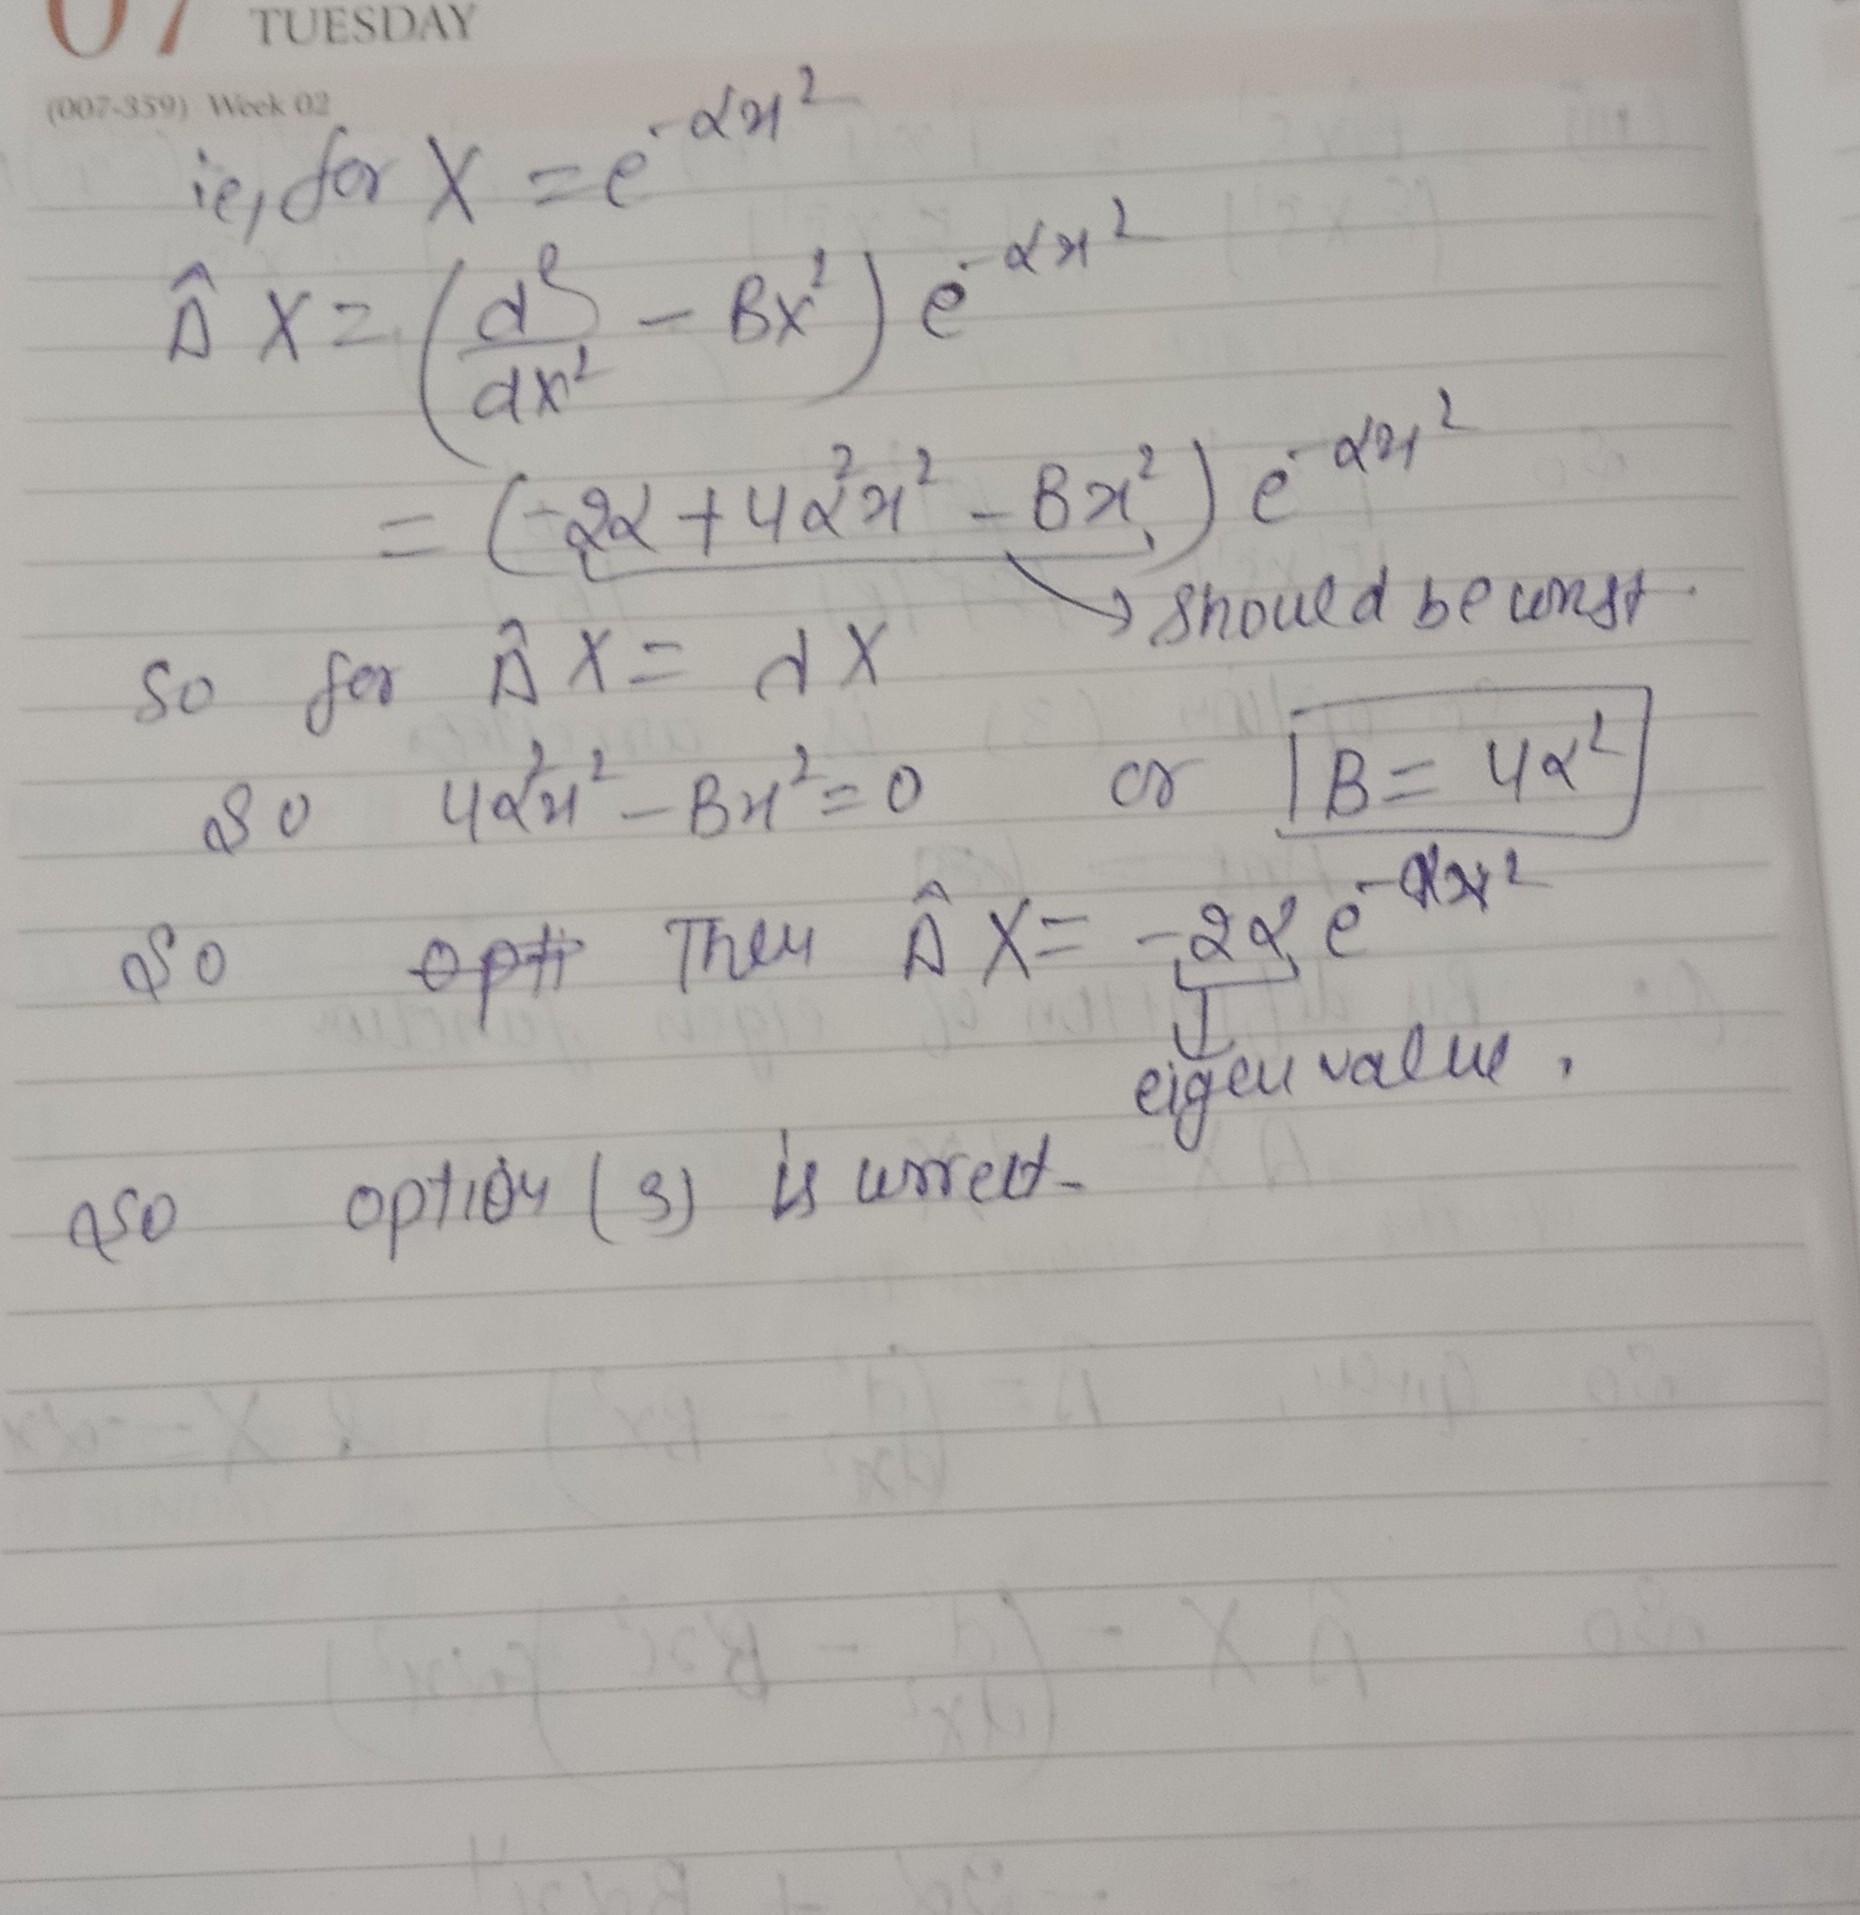 07 TUESDAY
(007-359) Week 02
ie, for X = e^{-αx²}
Â X = (d²/dx² - Bx²) e^{-αx²}
= (-2α + 4α²x² - Bx²) e^{-αx²}
→ should be const.
So for Â X = d X
So 4α²x² - Bx² = 0 or B = 4α²
So opti Then Â X = -2α e^{-αx²}
eigen value.
So option (3) is correct-